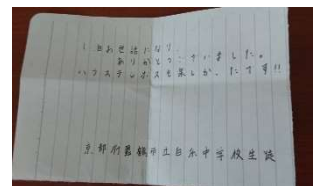 1日お世話になり
ありがとうございました。
ハウステンボスも楽しかったです!!
京都府 市立 中学校生徒